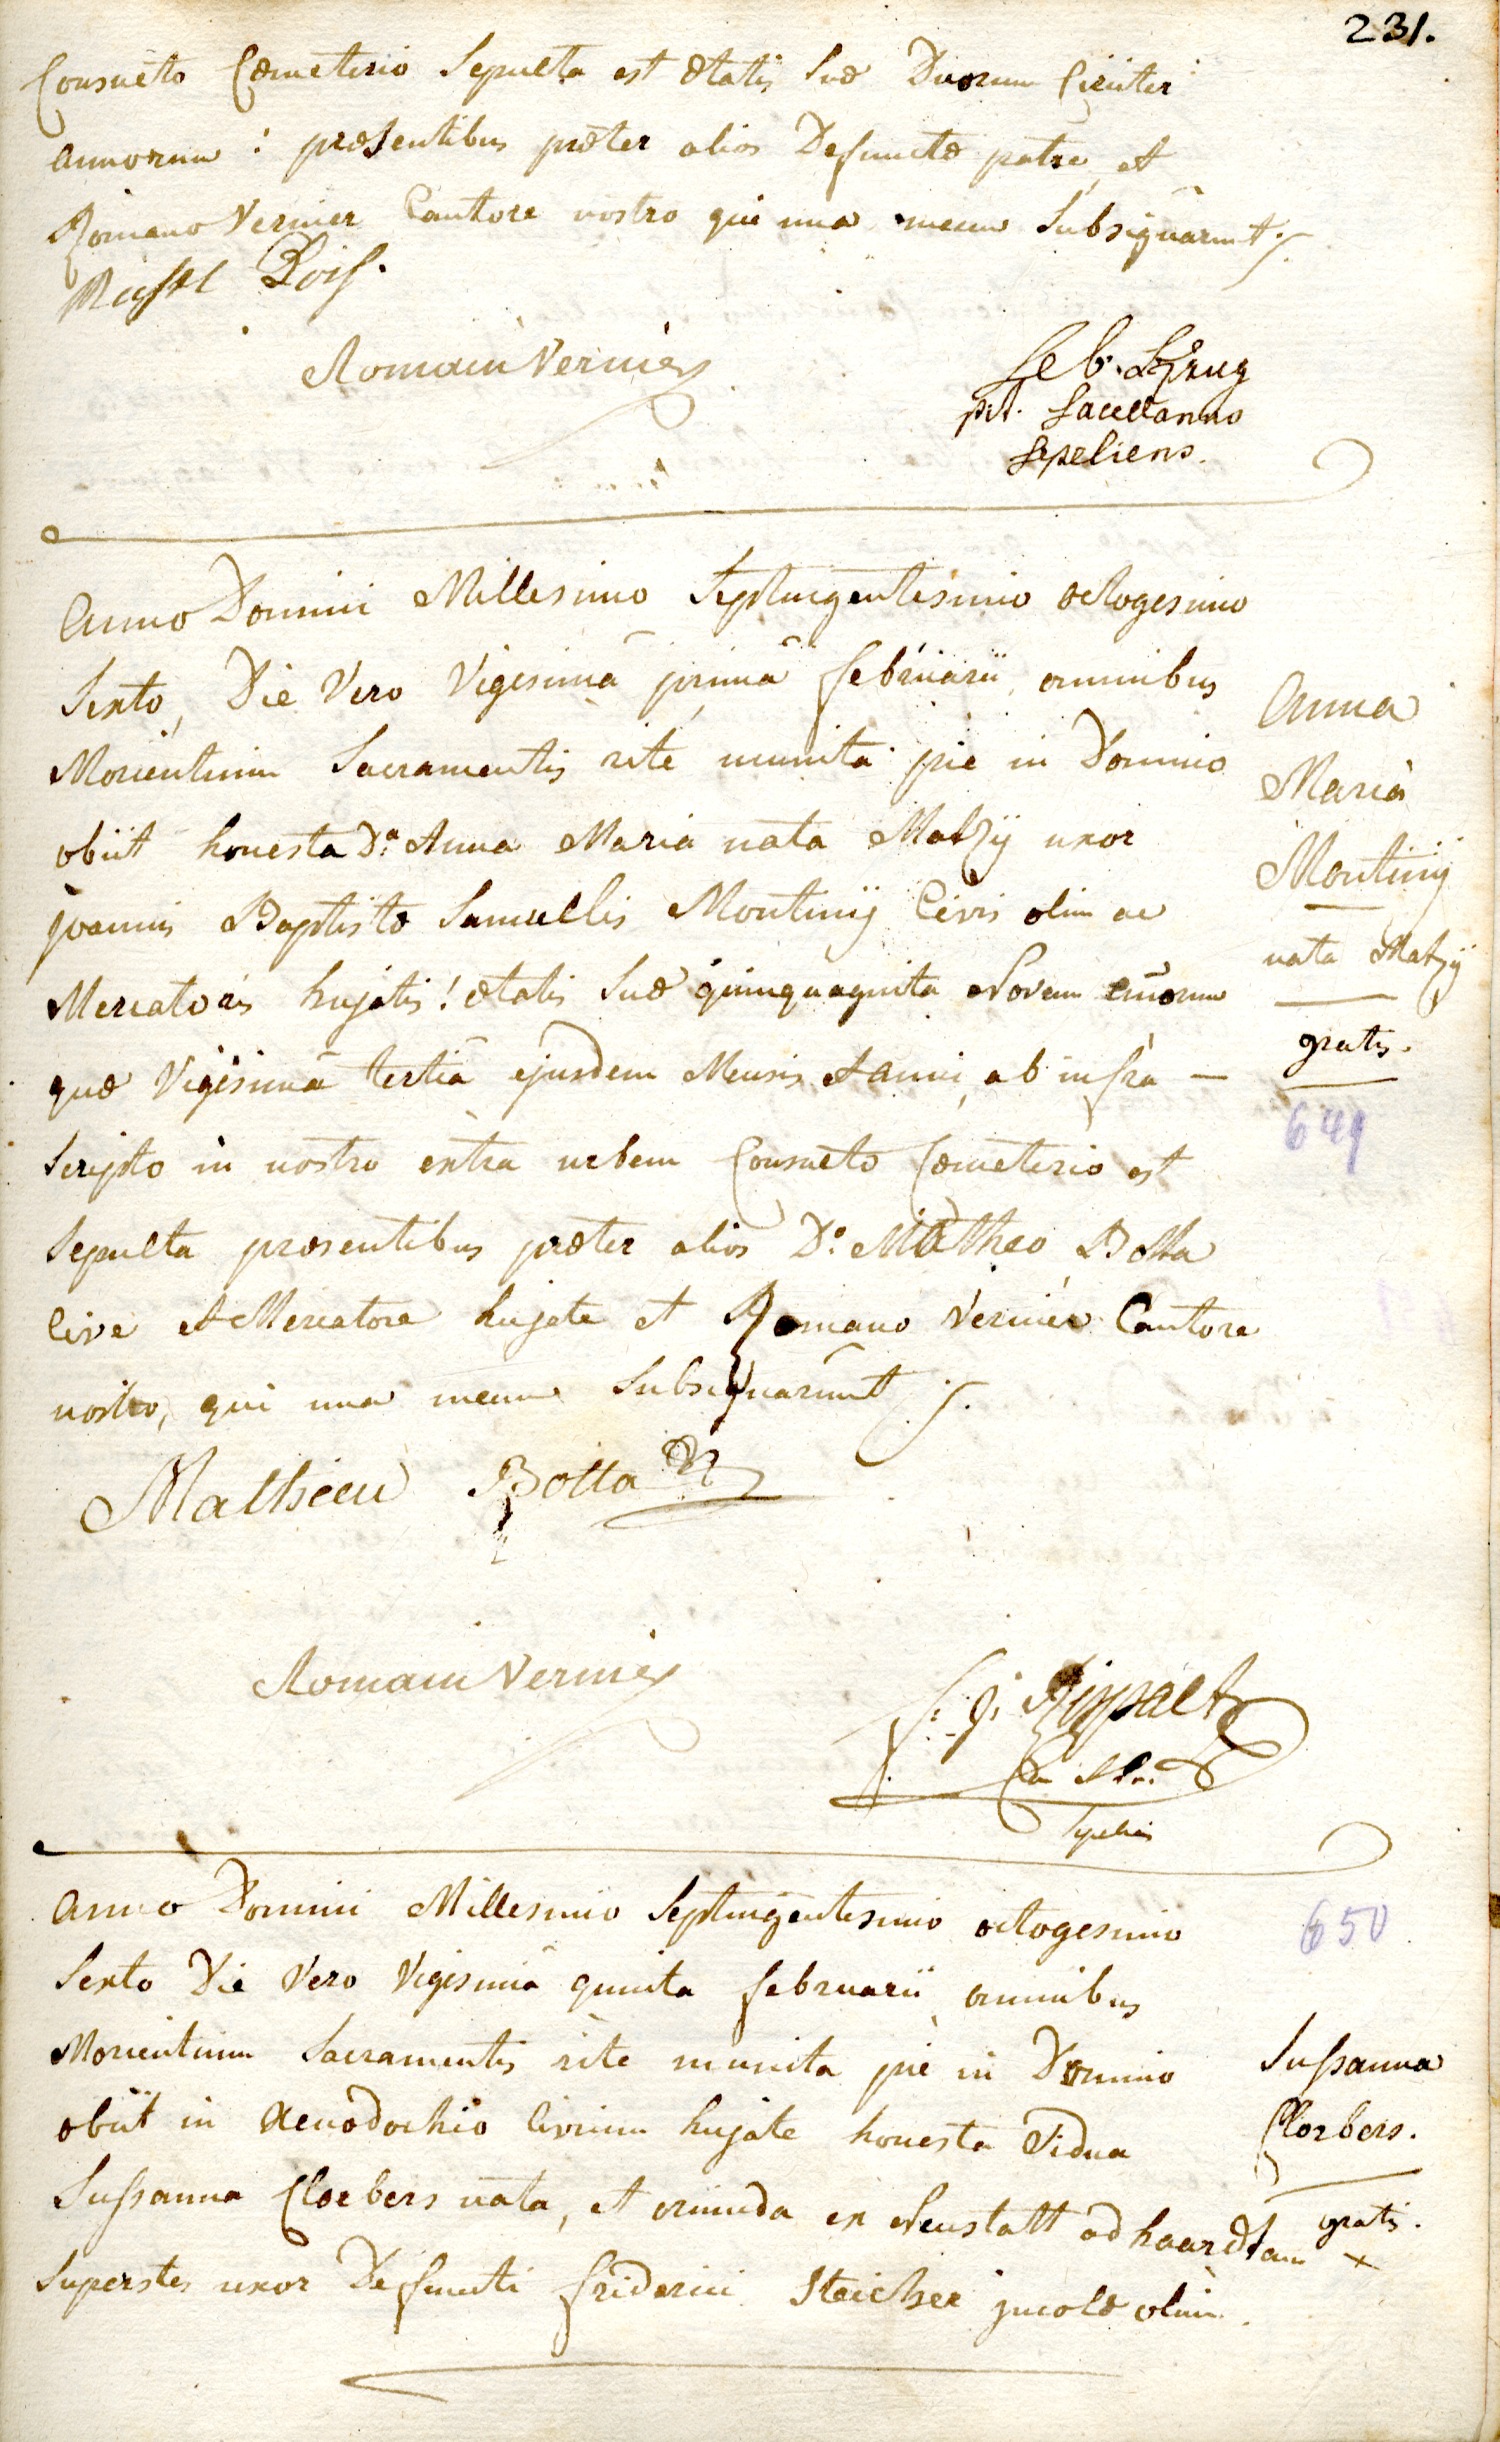 231.
Consueto Cœmeterio Sepulta est ætatis Suæ Duorum Circiter
annorum : præsentibus præter alios Defunctæ patre, et
Romano Vernier Cantore nostro qui una mecum Subsignarunt ·/.
Romain Vernier
Seb. Krug
pit. Sacellanno
Sepeliens.
Anno Domini Millesimo Septingentesimo octogesimo
Sexto, Die Vero Vigesimâ primâ februarii, omnibus
Morientium Sacramentis rite munita pie in Domino
obiit honesta Dª Anna Maria nata Matzij uxor
joannis Baptistæ Samuelis Montinij Civis olim ac
Mercatoris hujatis! ætatis Suæ quinquaginta Novem añorum
quæ Vigesimâ tertiâ ejusdem Mensis et anni, ab infra —
Scripto in nostro extra urbem Consueto Cœmeterio est
Sepulta præsentibus præter alios D° Matheo Botta
Cive et Mercatore hujate et Romano Vernier Cantore
nostro, qui una mecum Subsignarunt ·/.
Anna
Maria
Montinij
nata Matzij
gratis.
649
Mathieu Botta
Romain Vernier
Sepeliens
Anno Domini Millesimo Septingentesimo octogesimo
Sexto Die Vero Vigesimâ quinta februarii omnibus
Morientium Sacramentis rite munita pie in Domino
obiit in Xenodochio Civium hujate honesta Vidua
Sussanna Cloebers nata, et oriunda ex Neustatt ad haardtam
Superstes uxor Defuncti friderici Steicher jncolæ olim.
650
Sussanna
Cloebers.
gratis.
×